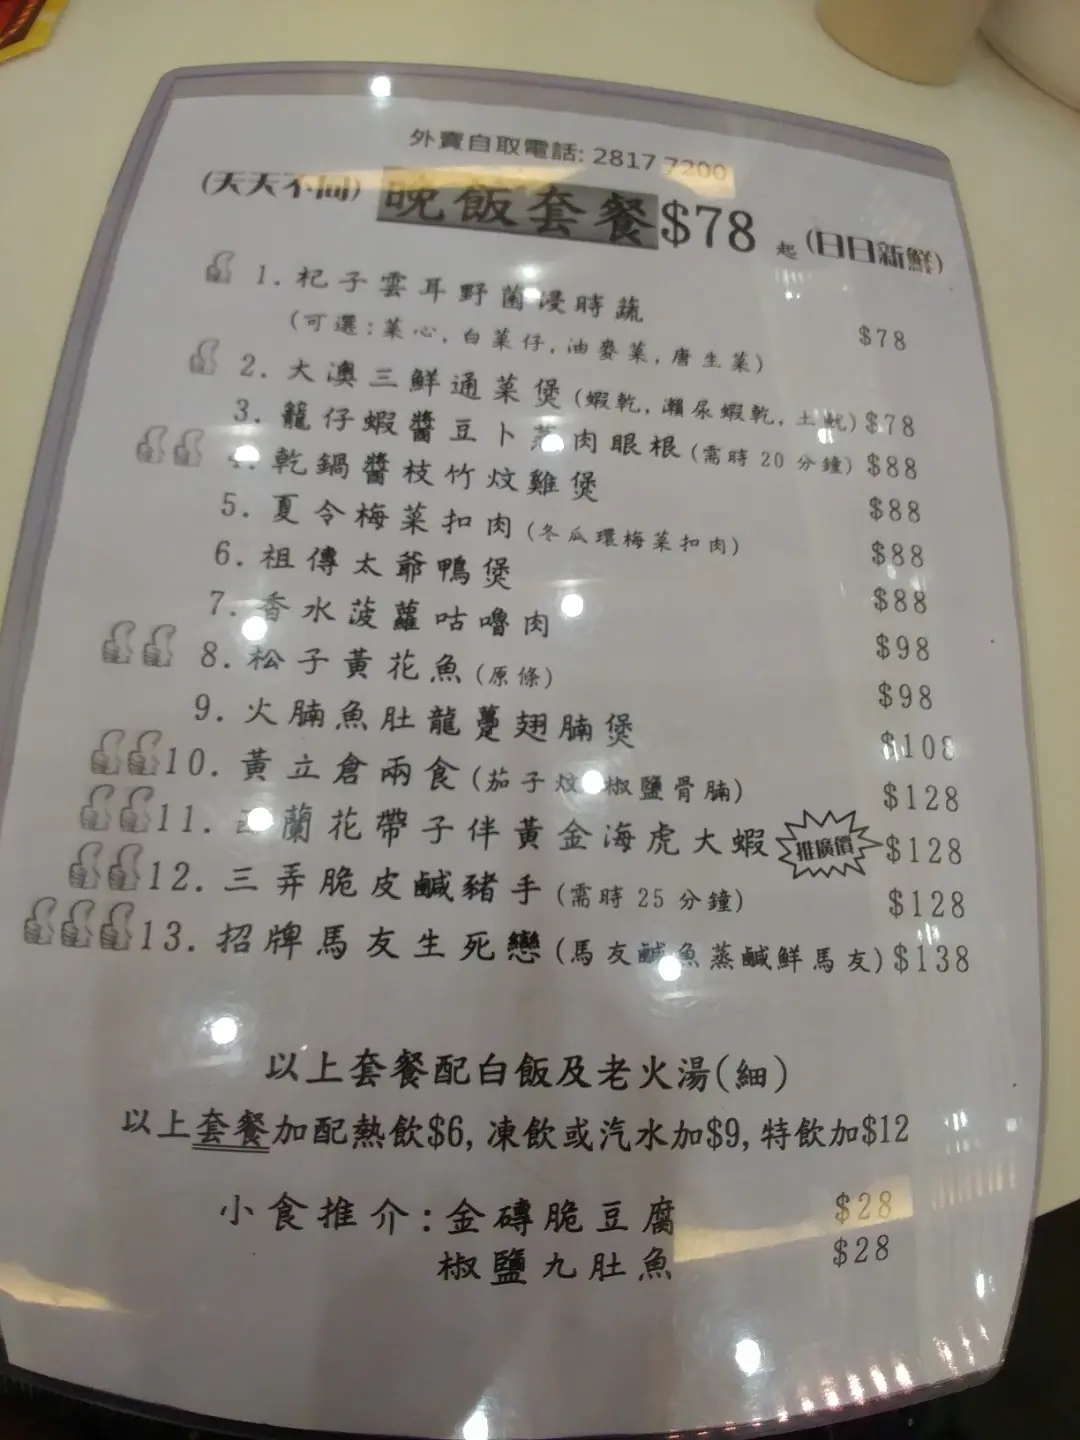 外賣自取電話: 2817 7200
(天天不同) 晚飯套餐$78 起 (日日新鮮)
1. 杞子雲耳野菌浸時蔬 $78
(可選:菜心,白菜仔,油麥菜,唐生菜)
2. 大澳三鮮通菜煲(蝦乾,瀨尿蝦乾,土魷) $78
3. 籠仔蝦醬豆卜蒸肉眼根(需時20分鐘) $88
4. 乾鍋醬枝竹炆雞煲 $88
5. 夏令梅菜扣肉(冬瓜環梅菜扣肉) $88
6. 祖傳太爺鴨煲 $88
7. 香水菠蘿咕嚕肉 $98
8. 松子黃花魚(原條) $98
9. 火腩魚肚龍躉翅腩煲 $108
10. 黃立倉兩食(茄子炆 椒鹽骨腩) $128
11. 西蘭花帶子伴黃金海虎大蝦 推廣價 $128
12. 三弄脆皮鹹豬手(需時25分鐘) $128
13. 招牌馬友生死戀(馬友鹹魚蒸鹹鮮馬友) $138
以上套餐配白飯及老火湯(細)
以上套餐加配熱飲$6,凍飲或汽水加$9,特飲加$12
小食推介:金磚脆豆腐 $28
椒鹽九肚魚 $28